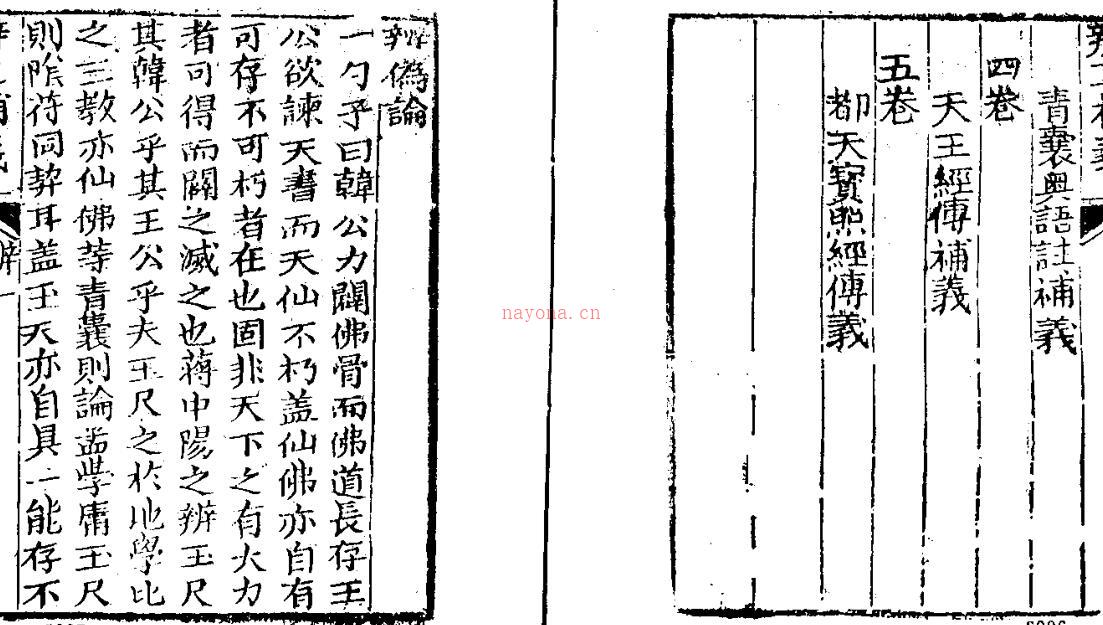 青囊奧語註補義
四卷
天王經傳補義
五卷
都天寳照經傳義
辨偽論
一勺子曰韓公力闢佛骨而佛道長存王
公欲諫天書而天仙不朽盖仙佛亦自有
可存不可朽者在也固非天下之有大力
者可得而闢之滅之也蔣中陽之辨玉尺
其韓公乎其王公乎夫玉尺之於地學比
之三教亦仙佛等青囊則論孟學庸玉尺
則隂符同契耳盖玉天亦自具一能存不
nayona.cn